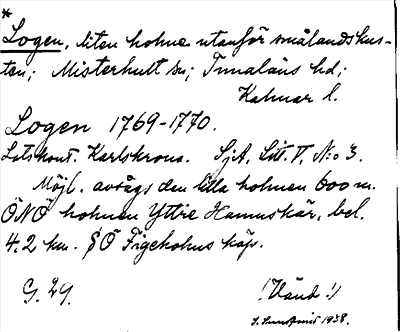 *
Logen, liten holme utanför smålandskus-
ten; Misterhult sn; Tunaläns hd;
Kalmar l.
Logen 1769-1770.
Lotskont. Karlskrona. SjA, Litt. V, N:o 3.
Möjl. avsågs den lilla holmen 600 m.
ÖNÖ holmen Yttre Hamnskär, bel.
4.2 km. SÖ Figeholms köp.
G. 29. (Vänd!)
S. 1938.